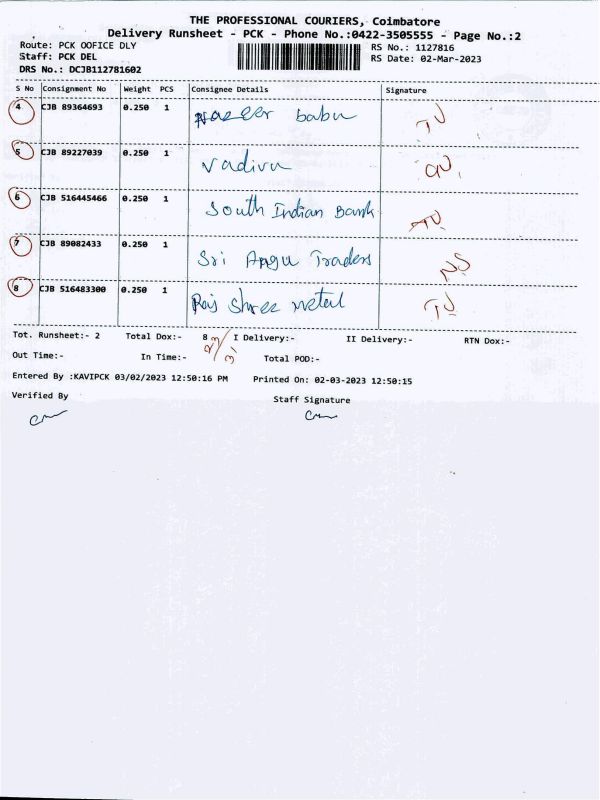 THE PROFESSIONAL COURIERS, Coimbatore
Delivery Runsheet - PCK - Phone No.:0422-3505555 - Page No.:2
Route: PCK OOFICE DLY
RS No.: 1127816
Staff: PCK DEL
RS Date: 02-Mar-2023
DRS No.: DCJB112781602
S No Consignment No Weight PCS Consignee Details Signature
4 CJB 89364693 0.250 1 Nazeer babu
5 CJB 89227039 0.250 1 Vadivu
6 CJB 516445466 0.250 1 South Indian Bank
7 CJB 89082433 0.250 1 Sri Angu Traders NS
8 CJB 516483300 0.250 1 Raj Shree metal
Tot. Runsheet:- 2 Total Dox:- 8 I Delivery:- II Delivery:- RTN Dox:-
Out Time:- In Time:- Total POD:-
Entered By :KAVIPCK 03/02/2023 12:50:16 PM Printed On: 02-03-2023 12:50:15
Verified By Staff Signature